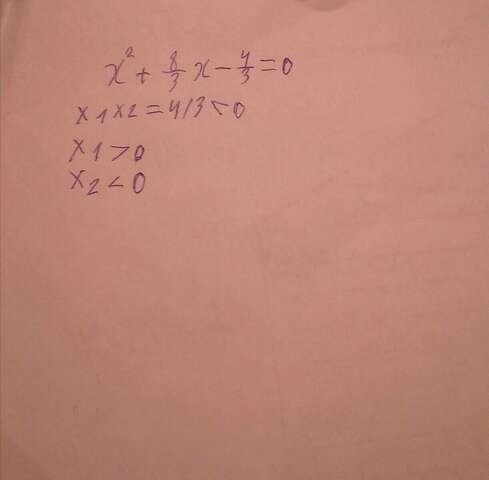 x² + 8/3 x - 4/3 = 0
x1x2 = 4/3 < 0
x1 > 0
x2 < 0